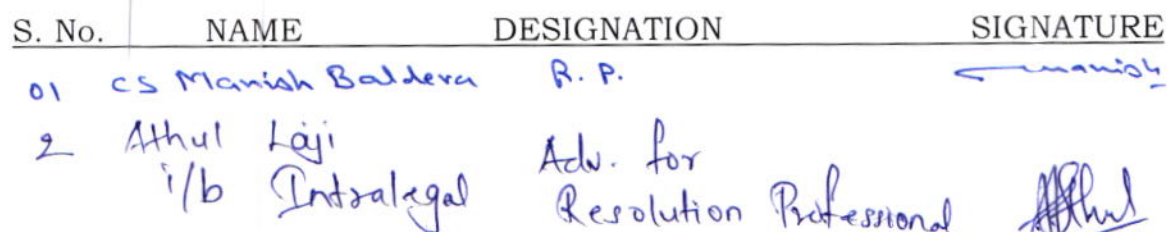 S. No. NAME DESIGNATION SIGNATURE
01 CS Manish Baldeva R. P. Manish
2 Athul Laji Adv. for
i/b Intralegal Resolution Professional Athul